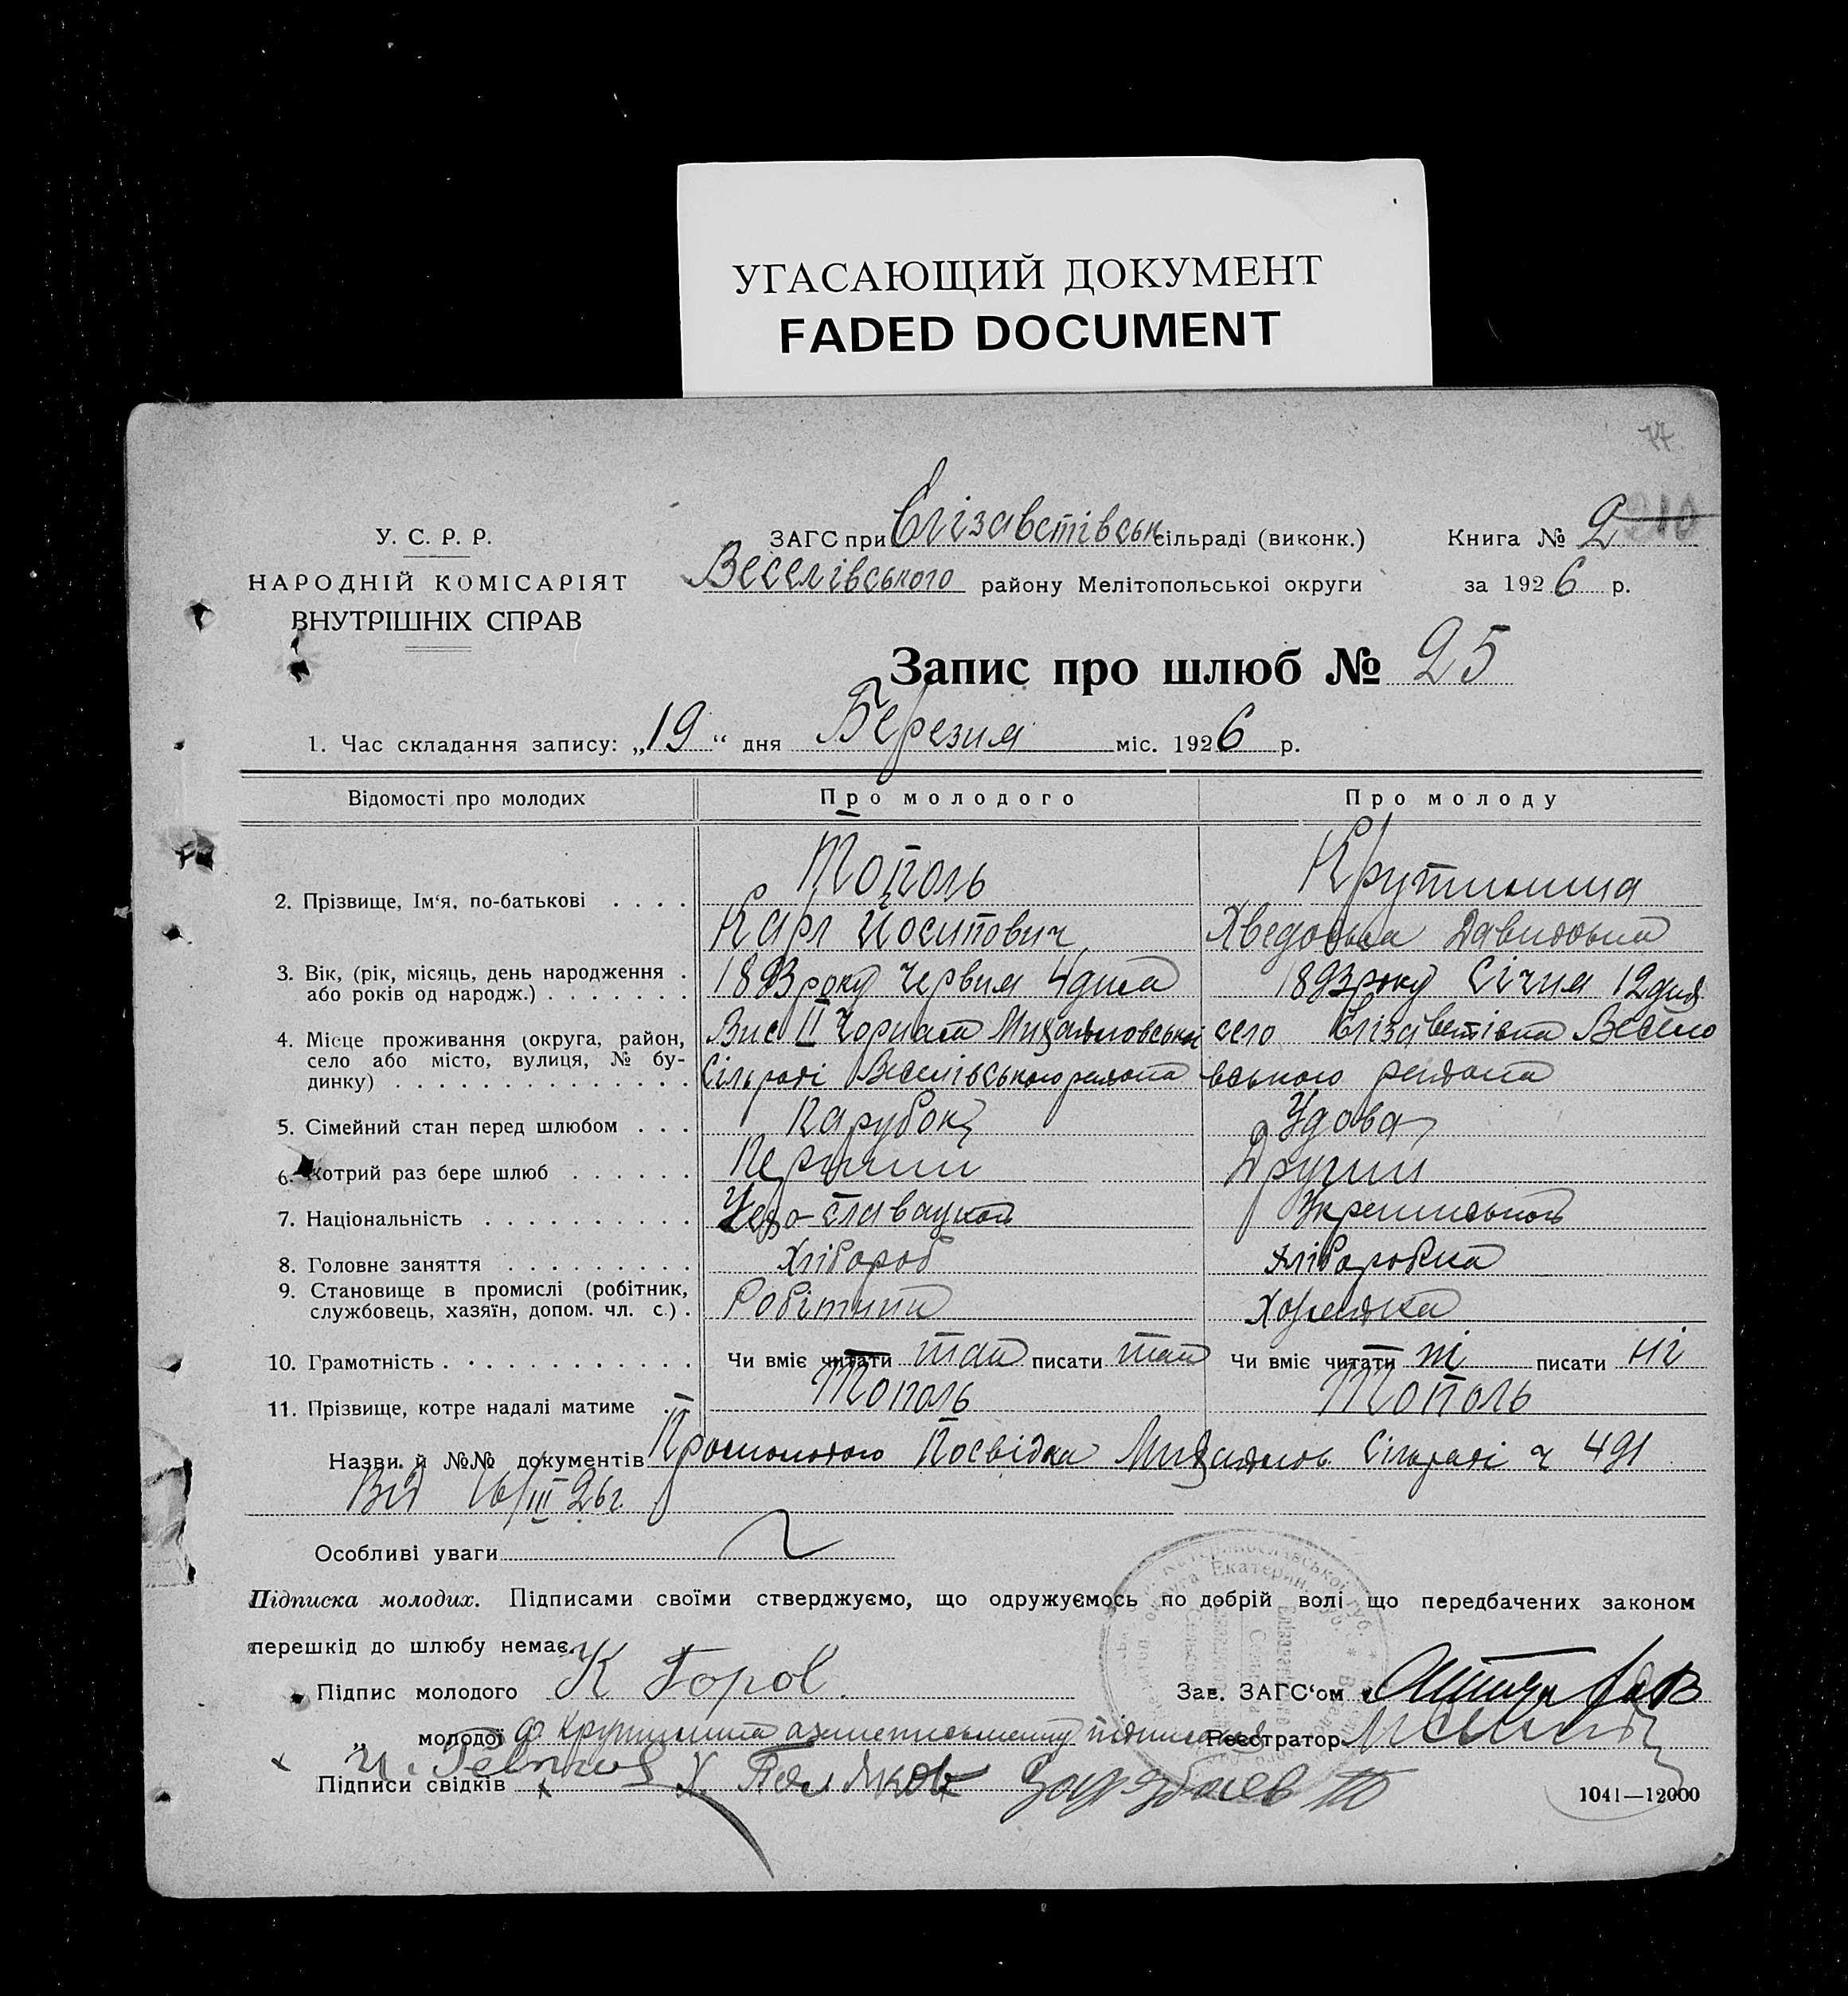 УГАСАЮЩИЙ ДОКУМЕНТ
FADED DOCUMENT
77
У. С. Р. Р.
НАРОДНІЙ КОМІСАРІЯТ
ВНУТРІШНІХ СПРАВ
ЗАГС при Єлізаветівськ сільраді (виконк.)
Веселівського району Мелітопольської округи
Книга № 2
за 1926 р.
Запис про шлюб № 25
1. Час складання запису: „19“ дня Березня міс. 1926 р.
Відомості про молодих Про молодого Про молоду
2. Прізвище, Ім‘я, по-батькові . . . .
Тополь
Карл Йосипович
Крутишина
Хведосья Давидовна
3. Вік, (рік, місяць, день народження .
або років од народж.) . . . . . . .
1893 року Червня 4 дня
1893 року Січня 12 дня
4. Місце проживання (округа, район,
село або місто, вулиця, № бу-
динку) . . . . . . . . . . . . . .
Вис II Чорна Михайловської
Сільраді Веселівського района
село Єлізаветівка Весело
вського района
5. Сімейний стан перед шлюбом . . . Парубок Удова
6. Котрий раз бере шлюб . . . . . . Перший Другий
7. Національність . . . . . . . . . . Чехо-славацкой Украинськой
8. Головне заняття . . . . . . . . . Хлібороб Хліборобка
9. Становище в промислі (робітник,
службовець, хазяїн, допом. чл. с.) .
Робітник
Хозяйка
10. Грамотність . . . . . . . . . . . . Чи вміє читати так писати так Чи вміє читати ні писати ні
11. Прізвище, котре надалі матиме . . Тополь Тополь
Назви й №№ документів Посвідка Михайлов. Сільраді ч 491
Від 16/III 26 г.
Особливі уваги
Підписка молодих. Підписами своїми стверджуємо, що одружуємось по добрій волі що передбачених законом
перешкід до шлюбу немає.
Підпис молодого К
Зав. ЗАГС‘ом
„ молодої Крутишина
Реєстратор
Підписи свідків
1041—12000